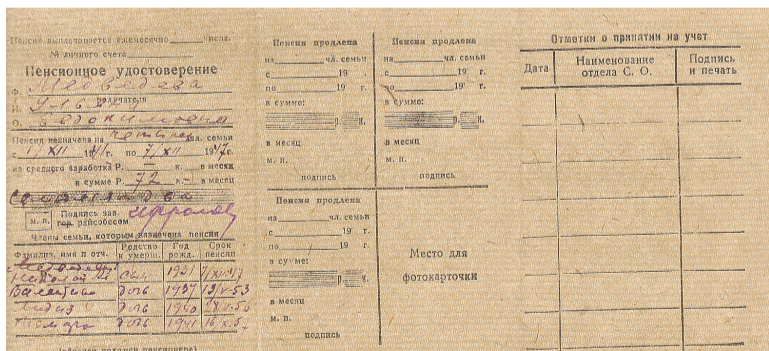 Пенсия выплачивается ежемесячно ______ числа.
№ личного счета
Пенсионное удостоверение
Ф. Медведева
получателя
И. Ульяна
О. Евдокимовна
Пенсия назначена на четырех чл. семьи
с 17/XII 1941г. по 7/XII 1947г.
из среднего заработка Р. — к. — в месяц
в сумме Р. 72 к. — в месяц
Семьдесят два
м. п.
Подпись зав.
гор. райсобесом
Члены семьи, которым назначена пенсия
Фамилия, имя и отч. Родство к умерш. Год рожд. Срок пенсии
Медведев
Николай сын 1931 7/XII-47
Валентина дочь 1937 13/V-53
Лидия дочь 1940
Тамара дочь 1941
(образец подписи пенсионера)
Пенсия продлена
на ______ чл. семьи
с ______ 19 г.
по ______ 19 г.
в сумме:
р. к.
в месяц
м. п.
подпись
Пенсия продлена
на ______ чл. семьи
с ______ 19 г.
по ______ 19 г.
в сумме:
р. к.
в месяц
м. п.
подпись
Пенсия продлена
на ______ чл. семьи
с ______ 19 г.
по ______ 19 г.
в сумме:
р. к.
в месяц
м. п.
подпись
Место для
фотокарточки
Отметки о принятии на учет
Дата Наименование отдела С. О. Подпись и печать